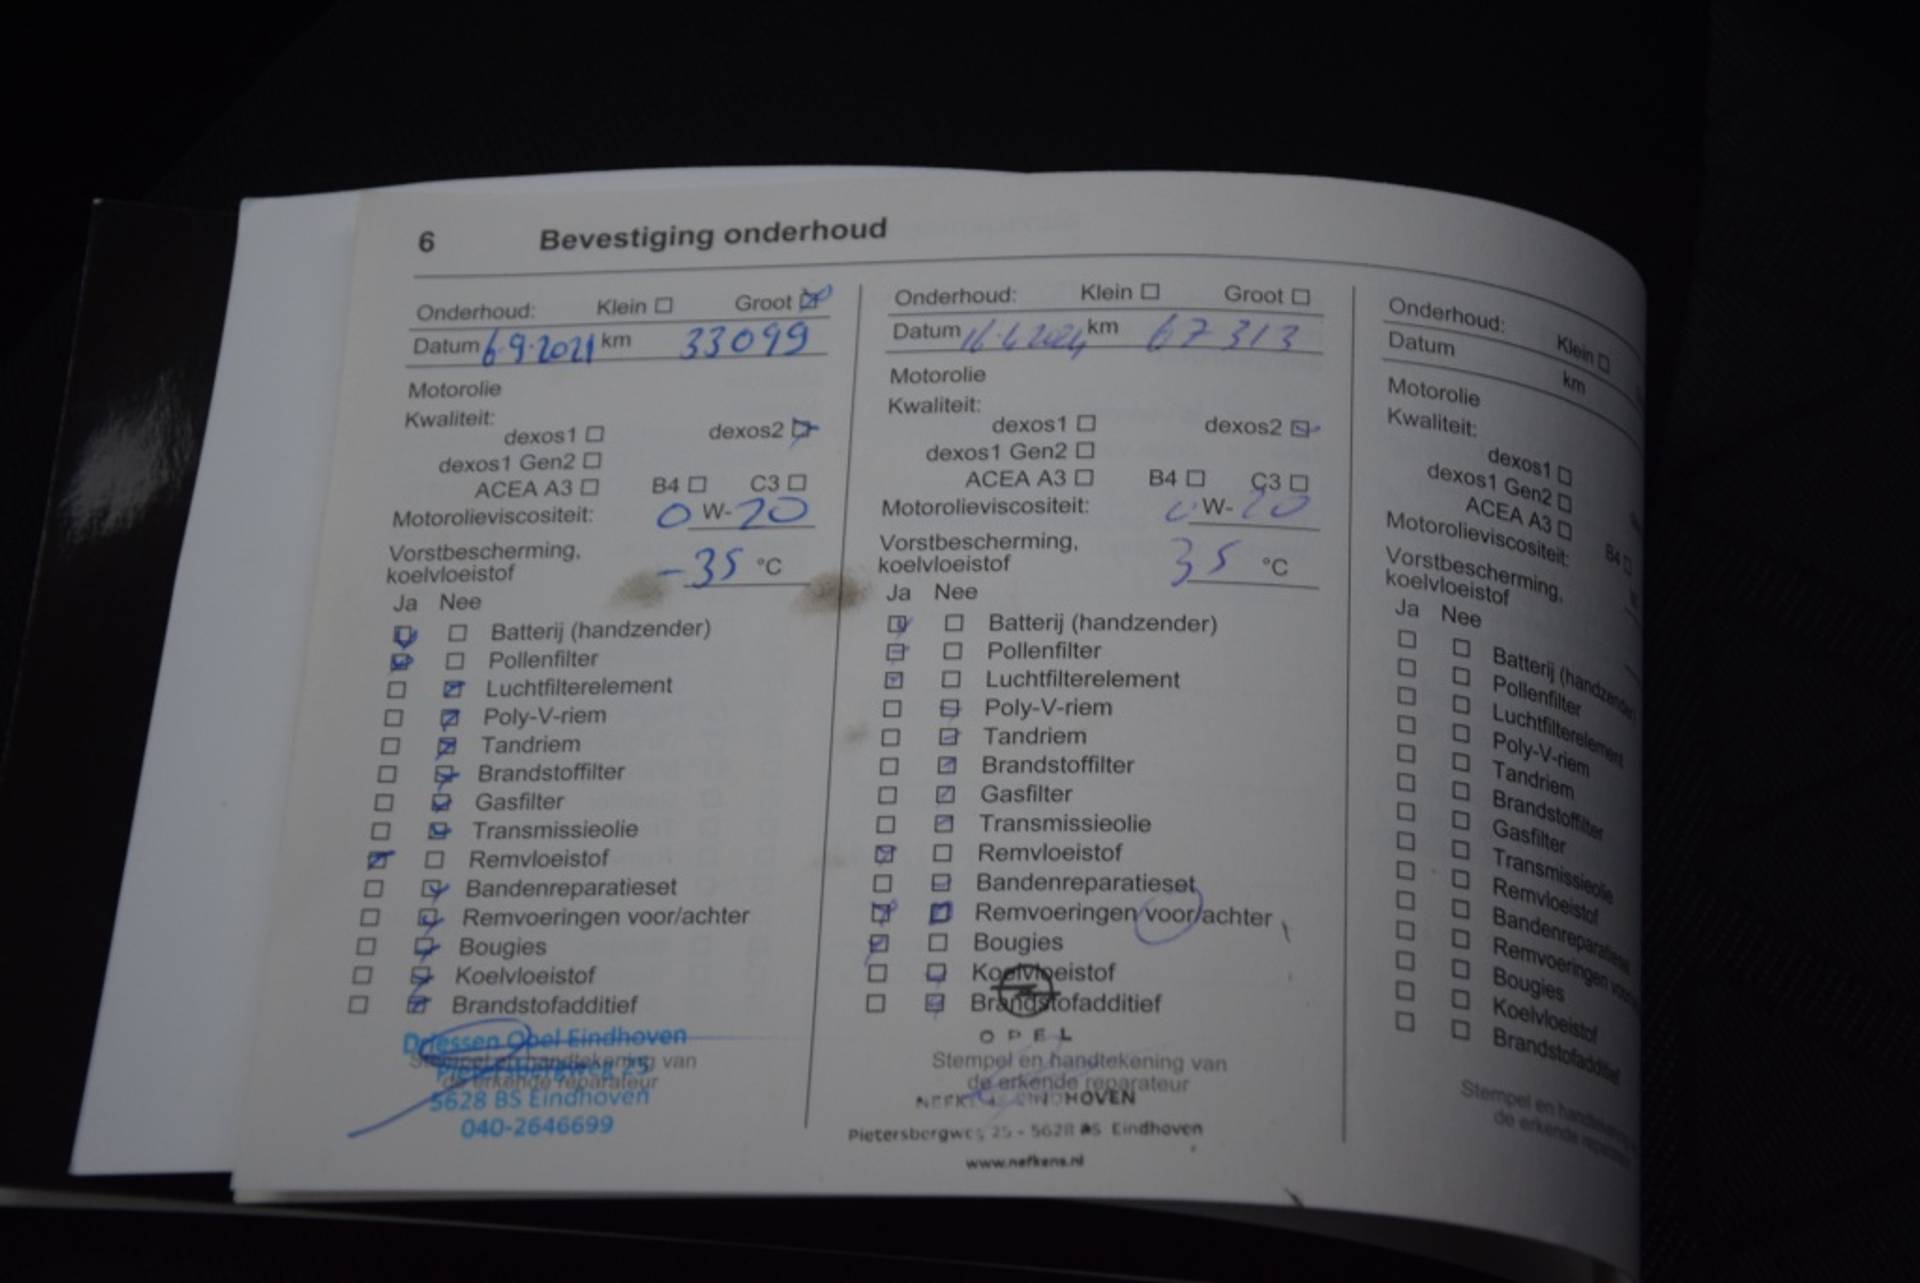 6 Bevestiging onderhoud
Onderhoud: Klein Groot
Datum 6-9-2021 km 33099
Motorolie
Kwaliteit:
dexos1 dexos2
dexos1 Gen2
ACEA A3 B4 C3
Motorolieviscositeit: 0 W- 20
Vorstbescherming,
koelvloeistof -35 °C
Ja Nee
Batterij (handzender)
Pollenfilter
Luchtfilterelement
Poly-V-riem
Tandriem
Brandstoffilter
Gasfilter
Transmissieolie
Remvloeistof
Bandenreparatieset
Remvoeringen voor/achter
Bougies
Koelvloeistof
Brandstofadditief
Driessen Opel Eindhoven
Stempel en handtekening van
Pietersbergweg 25
de erkende reparateur
5628 BS Eindhoven
040-2646699
Onderhoud: Klein Groot
Datum 2024 km 67313
Motorolie
Kwaliteit:
dexos1 dexos2
dexos1 Gen2
ACEA A3 B4 C3
Motorolieviscositeit: 0 W- 20
Vorstbescherming,
koelvloeistof 35 °C
Ja Nee
Batterij (handzender)
Pollenfilter
Luchtfilterelement
Poly-V-riem
Tandriem
Brandstoffilter
Gasfilter
Transmissieolie
Remvloeistof
Bandenreparatieset
Remvoeringen voor/achter
Bougies
Koelvloeistof
Brandstofadditief
OPEL
Stempel en handtekening van
de erkende reparateur
NEFKENS EINDHOVEN
Pietersbergweg 25 - 5628 BS Eindhoven
www.nefkens.nl
Onderhoud: Klein
Datum km
Motorolie
Kwaliteit:
dexos1
dexos1 Gen2
ACEA A3 B4
Motorolieviscositeit:
Vorstbescherming,
koelvloeistof
Ja Nee
Batterij (handzender
Pollenfilter
Luchtfilterelement
Poly-V-riem
Tandriem
Brandstoffilter
Gasfilter
Transmissieolie
Remvloeistof
Bandenreparatieset
Remvoeringen voor
Bougies
Koelvloeistof
Brandstofadditief
Stempel en handtekening
de erkende reparateur